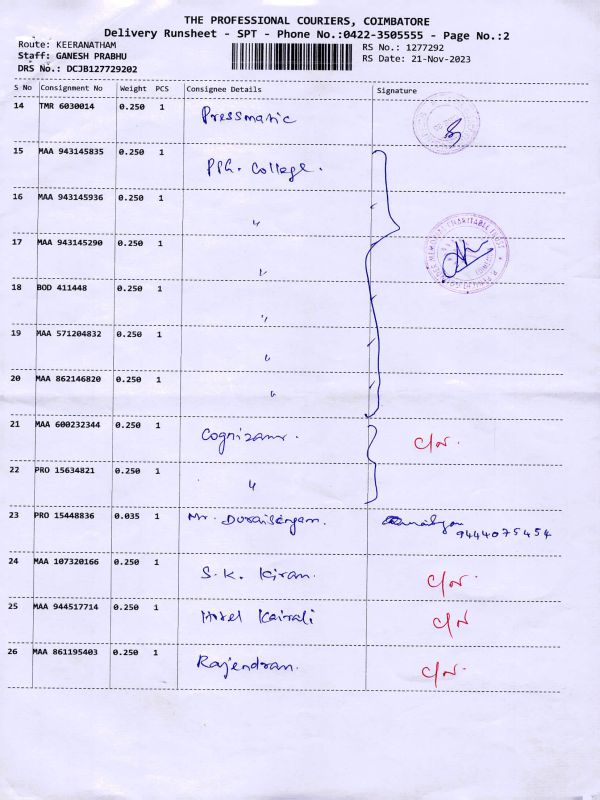 THE PROFESSIONAL COURIERS, COIMBATORE
Delivery Runsheet - SPT - Phone No.:0422-3505555 - Page No.:2
Route: KEERANATHAM RS No.: 1277292
Staff: GANESH PRABHU RS Date: 21-Nov-2023
DRS No.: DCJB127729202
S No Consignment No Weight PCS Consignee Details Signature
14 TMR 6030014 0.250 1 Pressmatic
15 MAA 943145835 0.250 1 PPG. College.
16 MAA 943145936 0.250 1 "
17 MAA 943145290 0.250 1 "
18 BOD 411448 0.250 1 "
19 MAA 571204832 0.250 1 "
20 MAA 862146820 0.250 1 "
21 MAA 600232344 0.250 1 Cognizant. C/N.
22 PRO 15634821 0.250 1 "
23 PRO 15448836 0.035 1 Mr. Duraisingam. 9444075454
24 MAA 107320166 0.250 1 S.K. Kiran. C/N.
25 MAA 944517714 0.250 1 Hotel Kairali C/N
26 MAA 861195403 0.250 1 Rajendran. C/N.